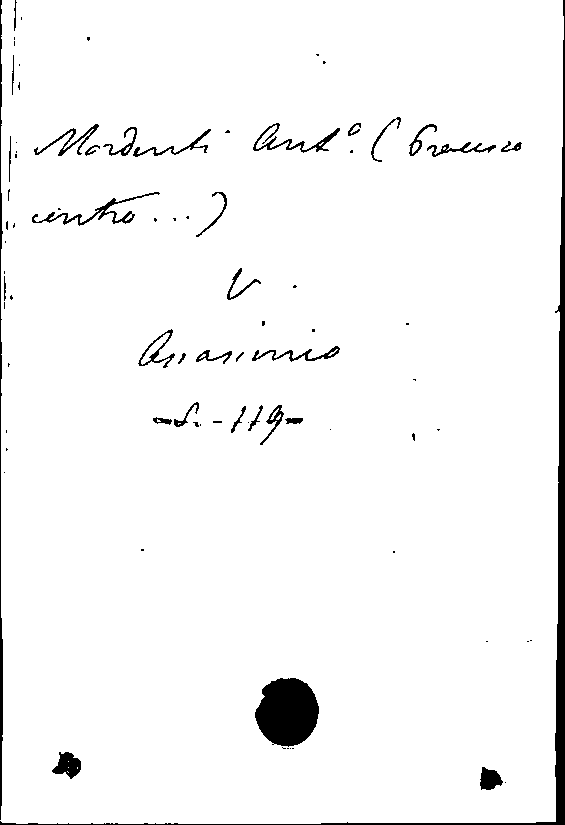 Mordenti Ant.º (Processo
contro ...)
V.
Assassinio
-S.-119-